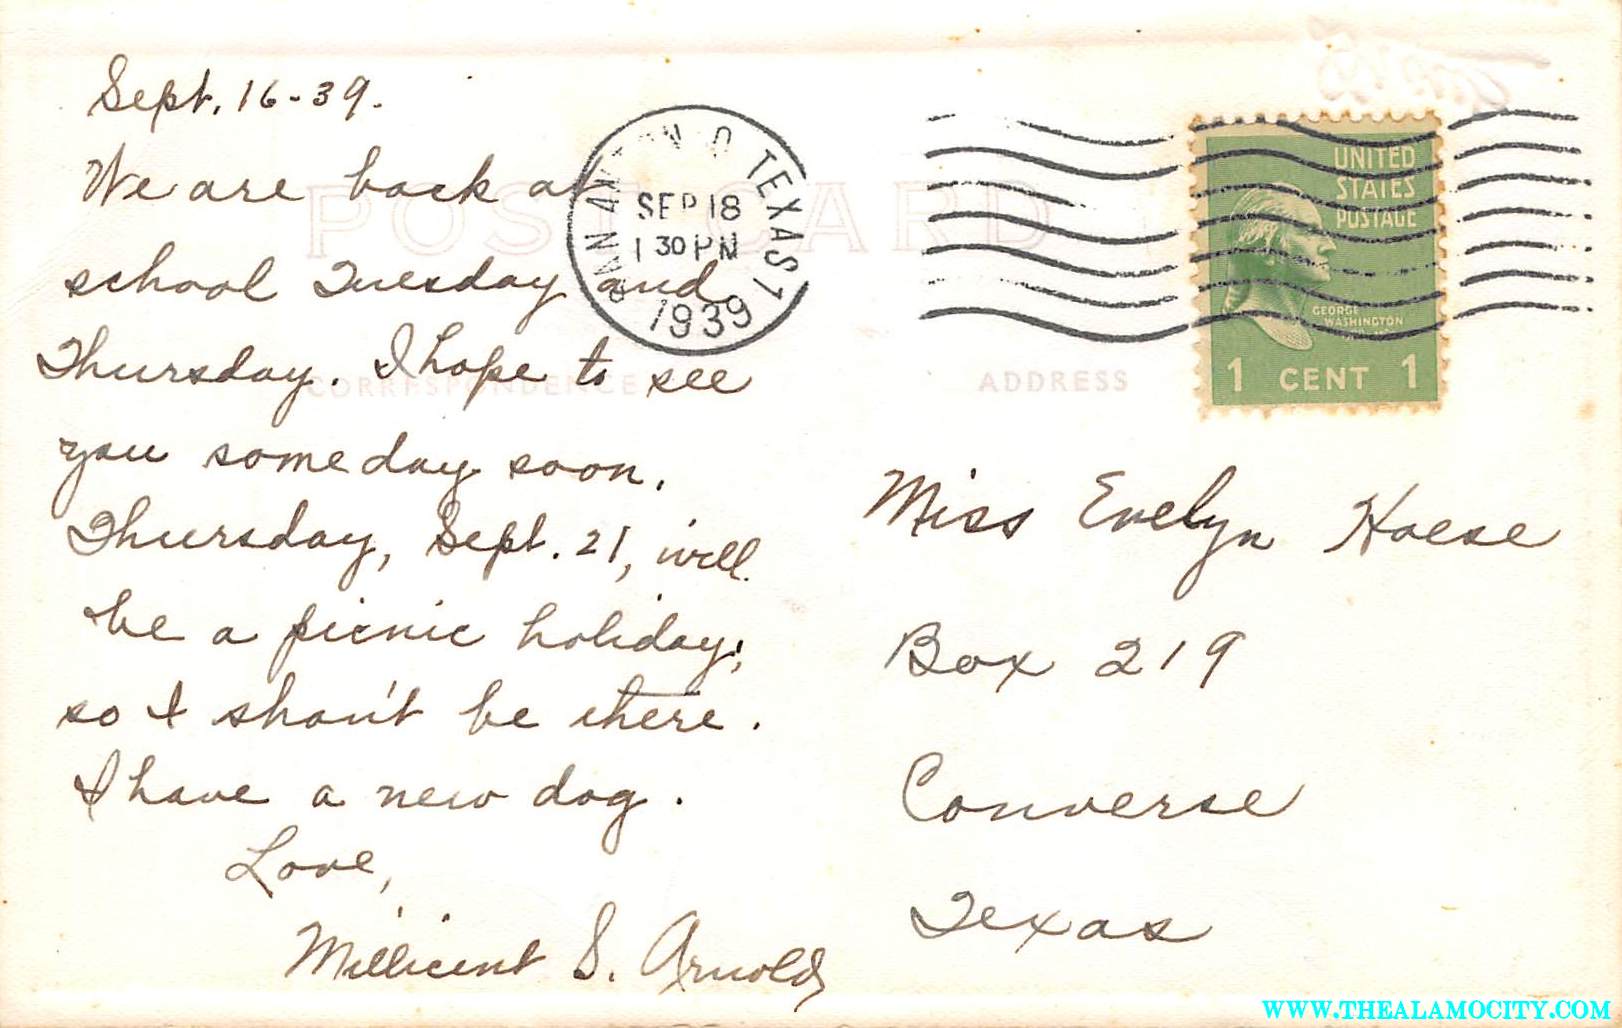 Sept. 16-39.
We are back at
school Tuesday and
Thursday. I hope to see
you some day soon.
Thursday, Sept. 21, will
be a picnic holiday;
so I shan't be there.
I have a new dog.
Love,
Millicent S. Arnold
POST CARD
CORRESPONDENCE
ADDRESS
SAN ANTONIO TEXAS 1
SEP 18
1 30 PM
1939
UNITED
STATES
POSTAGE
GEORGE
WASHINGTON
1 CENT 1
Miss Evelyn Haese
Box 219
Converse
Texas
WWW.THEALAMOCITY.COM